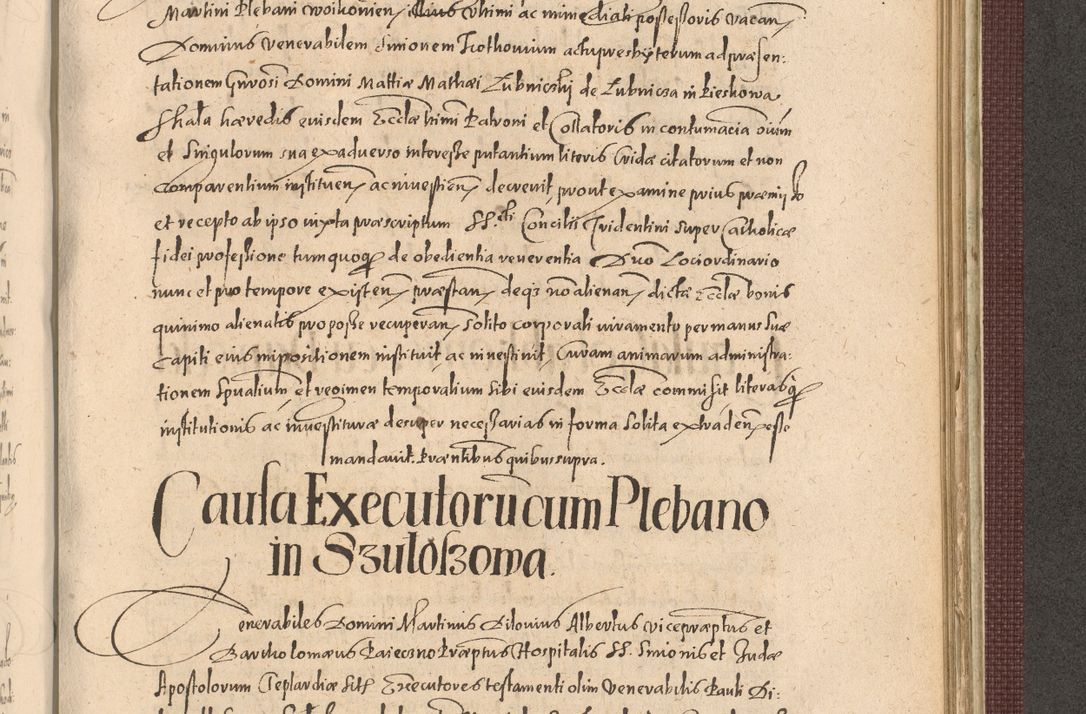 Martini Plebani Woikonien, illius ultimi ac immediati possessoris vacan,
Dominus venerabilem Simonem Trothonium actu presbyterum ad præsen:
tationem Gnrosi Domini Mattiæ Mathæi Lubniczkij de Lubnicza in Pieskowa
Skała hæredis eiusdem Ecclæ himi Patroni et Collatoris in contumacia oium
et singulorum sua ex adverso interesse putantium literis Cridæ citatorum et non
comparentium instituen, ac inuestien, decrevit, prout examine prius præmisso
et recepto ab ipso iuxta præscriptum SS.cti Concilii Tridentini super Catholicæ
fidei professione tum quoq de obedientia reverentia Duo Loci ordinario
nunc et pro tempore existen, præstan, deq3 non alienan, dictæ Ecclæ bonis
quinimo alienatis pro posse recuperan, solito corporali iuramento per manus suæ
capiti eius impositionem instituit, ac investivit, Curam animarum administra:
tionem Spualium et regimen temporalium sibi eiusdem Ecclæ commisit literasq
institutionis ac investituræ desuper necessarias in forma solita extraden, esse
mandavit. Præntibus quibus supra.
Causa Executorũ cum Plebano
in Szułoszowa.
Venerabiles Domini Martinus Dilovius Albertus vicepræptus et
Bartholomæus Paieczno Præptus Hospitalis SS. Simonis et Judæ
Apostolorum Cleplardiæ sit Executores testamenti olim Venerabilis Pauli Di: